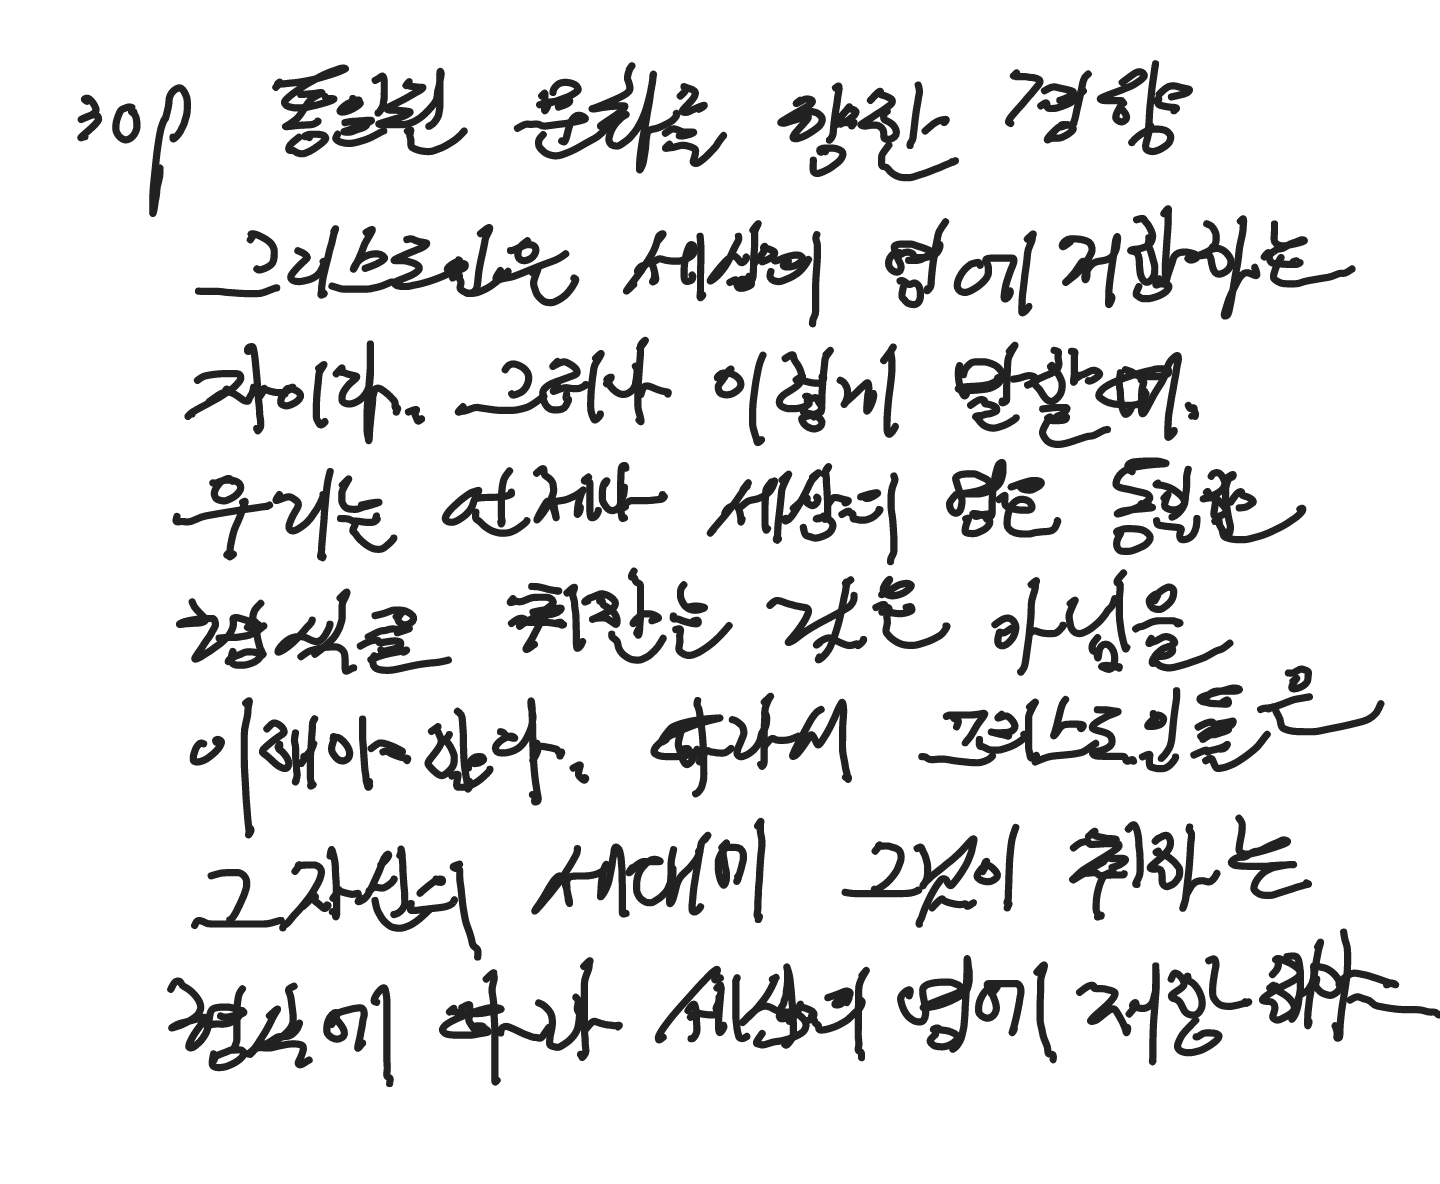 30p 통일된 문화를 향한 경향
그리스도인은 세상의 영에 저항하는
자이다. 그러나 이렇게 말할 때.
우리는 언제나 세상의 영은 동일한
형식을 취하는 것은 아님을
이해야 한다. 따라서 그리스도인들은
그 자신의 세대에 그것이 취하는
형식에 따라 세상의 영에 저항해야